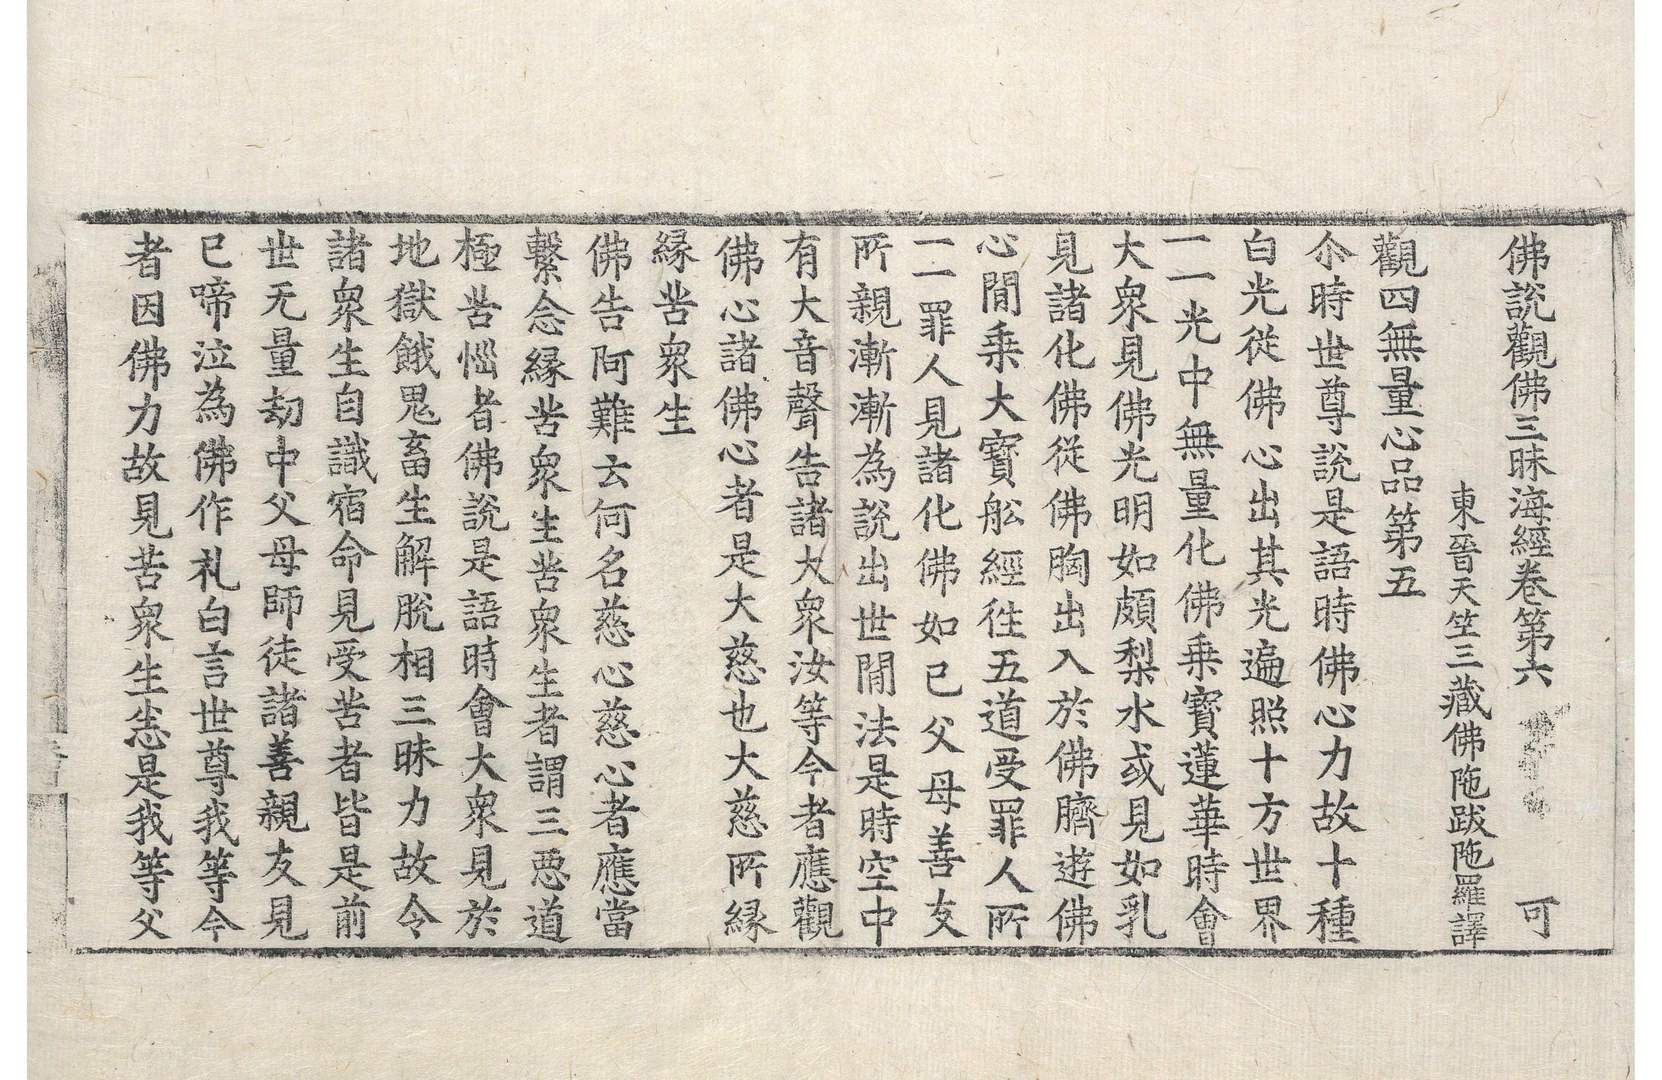 佛說觀佛三昧海經卷第六 可
東晉天竺三藏佛陁跋陁羅譯
觀四無量心品第五
尒時世尊說是語時佛心力故十種
白光從佛心出其光遍照十方世界
一一光中無量化佛乗寶蓮華時會
大衆見佛光明如頗梨水或見如乳
見諸化佛從佛胸出入於佛臍遊佛
心閒乗大寶舩經徃五道受罪人所
一一罪人見諸化佛如己父母善友
所親漸漸為說出世閒法是時空中
有大音聲告諸大衆汝等今者應觀
佛心諸佛心者是大慈也大慈所縁
縁苦衆生
佛告阿難云何名慈心慈心者應當
繫念縁苦衆生苦衆生者謂三惡道
極苦惱者佛說是語時會大衆見於
地獄餓鬼畜生解脫相三昧力故令
諸衆生自識宿命見受苦者皆是前
世无量劫中父母師徒諸善親友見
已啼泣為佛作礼白言世尊我等今
者因佛力故見苦衆生悉是我等父